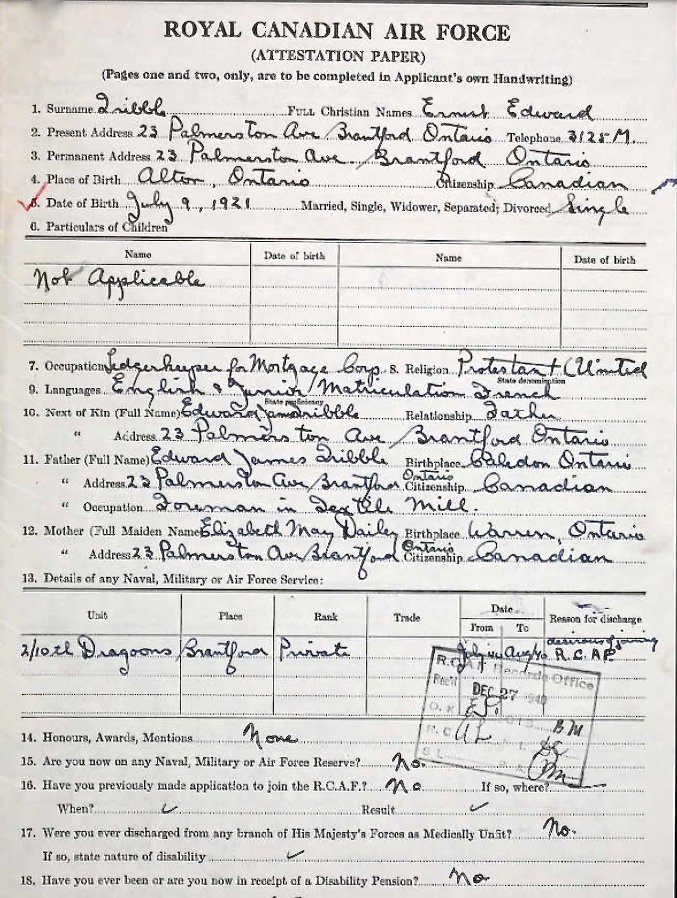 ROYAL CANADIAN AIR FORCE
(ATTESTATION PAPER)
(Pages one and two, only, are to be completed in Applicant's own Handwriting)
1. Surname Tribble FULL Christian Names Ernest Edward
2. Present Address 23 Palmerston Ave Brantford Ontario Telephone 3125 M.
3. Permanent Address 23 Palmerston Ave Brantford Ontario
4. Place of Birth Alton, Ontario Citizenship Canadian
5. Date of Birth July 9, 1921 Married, Single, Widower, Separated; Divorced Single
6. Particulars of Children
Name Date of birth Name Date of birth
Not Applicable
7. Occupation Ledgerkeeper for Mortgage Corp. 8. Religion Protestant (United
State denomination
9. Languages English & Junior Matriculation French
State proficiency
10. Next of Kin (Full Name) Edward James Tribble Relationship Father
" Address 23 Palmerston Ave Brantford Ontario
11. Father (Full Name) Edward James Tribble Birthplace Caledon Ontario
" Address 23 Palmerston Ave Brantford Ontario Citizenship Canadian
" Occupation Foreman in Textile Mill.
12. Mother (Full Maiden Name) Elizabeth May Dailey Birthplace Warren, Ontario
" Address 23 Palmerston Ave Brantford Ontario Citizenship Canadian
13. Details of any Naval, Military or Air Force Service:
Unit Place Rank Trade Date Reason for discharge
From To
desirous of joining
2/10th Dragoons Brantford Private July 40 Aug 40 R.C.A.F.
R.C.A.F. Records Office
REC'D DEC 27 1940
O.K.
14. Honours, Awards, Mentions None
15. Are you now on any Naval, Military or Air Force Reserve? No.
16. Have you previously made application to join the R.C.A.F.? No If so, where?
When? ✓ Result ✓
17. Were you ever discharged from any branch of His Majesty's Forces as Medically Unfit? No.
If so, state nature of disability ✓
18. Have you ever been or are you now in receipt of a Disability Pension? No